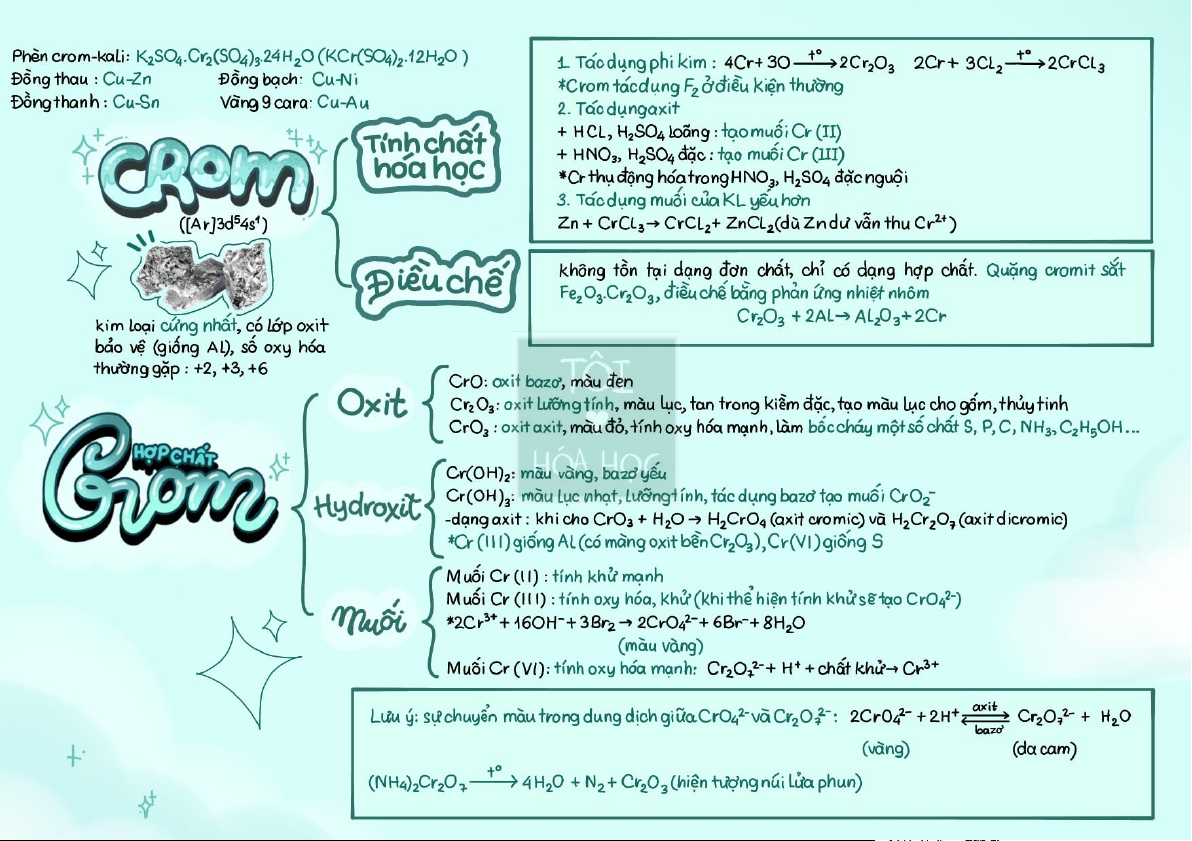 Phèn crom-kali: K₂SO₄.Cr₂(SO₄)₃.24H₂O (KCr(SO₄)₂.12H₂O )
Đồng thau : Cu-Zn Đồng bạch: Cu-Ni
Đồng thanh : Cu-Sn Vàng 9 cara: Cu-Au
CROM
([Ar]3d⁵4s¹)
kim loại cứng nhất, có lớp oxit
bảo vệ (giống Al), số oxy hóa
thường gặp : +2, +3, +6
Tính chất
hóa học
1. Tác dụng phi kim : 4Cr + 3O —t°→ 2Cr₂O₃ 2Cr + 3CL₂ —t°→ 2CrCL₃
*Crom tác dụng F₂ ở điều kiện thường
2. Tác dụng axit
+ HCL, H₂SO₄ loãng : tạo muối Cr (II)
+ HNO₃, H₂SO₄ đặc : tạo muối Cr (III)
*Cr thụ động hóa trong HNO₃, H₂SO₄ đặc nguội
3. Tác dụng muối của KL yếu hơn
Zn + CrCL₃ → CrCL₂ + ZnCL₂ (dù Zn dư vẫn thu Cr²⁺)
Điều chế
không tồn tại dạng đơn chất, chỉ có dạng hợp chất. Quặng cromit sắt
Fe₂O₃.Cr₂O₃, điều chế bằng phản ứng nhiệt nhôm
Cr₂O₃ + 2Al → Al₂O₃ + 2Cr
TÔI
HÓA HỌC
HỢP CHẤT
Crom
Oxit
CrO: oxit bazơ, màu đen
Cr₂O₃: oxit lưỡng tính, màu lục, tan trong kiềm đặc, tạo màu lục cho gốm, thủy tinh
CrO₃ : oxit axit, màu đỏ, tính oxy hóa mạnh, làm bốc cháy một số chất S, P, C, NH₃, C₂H₅OH...
Hydroxit
Cr(OH)₂: màu vàng, bazơ yếu
Cr(OH)₃: màu lục nhạt, lưỡng tính, tác dụng bazơ tạo muối CrO₂⁻
-dạng axit : khi cho CrO₃ + H₂O → H₂CrO₄ (axit cromic) và H₂Cr₂O₇ (axit dicromic)
*Cr (III) giống Al (có màng oxit bền Cr₂O₃), Cr(VI) giống S
Muối
Muối Cr (II) : tính khử mạnh
Muối Cr (III) : tính oxy hóa, khử (khi thể hiện tính khử sẽ tạo CrO₄²⁻)
*2Cr³⁺ + 16OH⁻ + 3Br₂ → 2CrO₄²⁻ + 6Br⁻ + 8H₂O
(màu vàng)
Muối Cr (VI): tính oxy hóa mạnh: Cr₂O₇²⁻ + H⁺ + chất khử → Cr³⁺
Lưu ý: sự chuyển màu trong dung dịch giữa CrO₄²⁻ và Cr₂O₇²⁻ : 2CrO₄²⁻ + 2H⁺ axit ⇌ bazơ Cr₂O₇²⁻ + H₂O
(vàng) (da cam)
(NH₄)₂Cr₂O₇ —t°→ 4H₂O + N₂ + Cr₂O₃ (hiện tượng núi lửa phun)